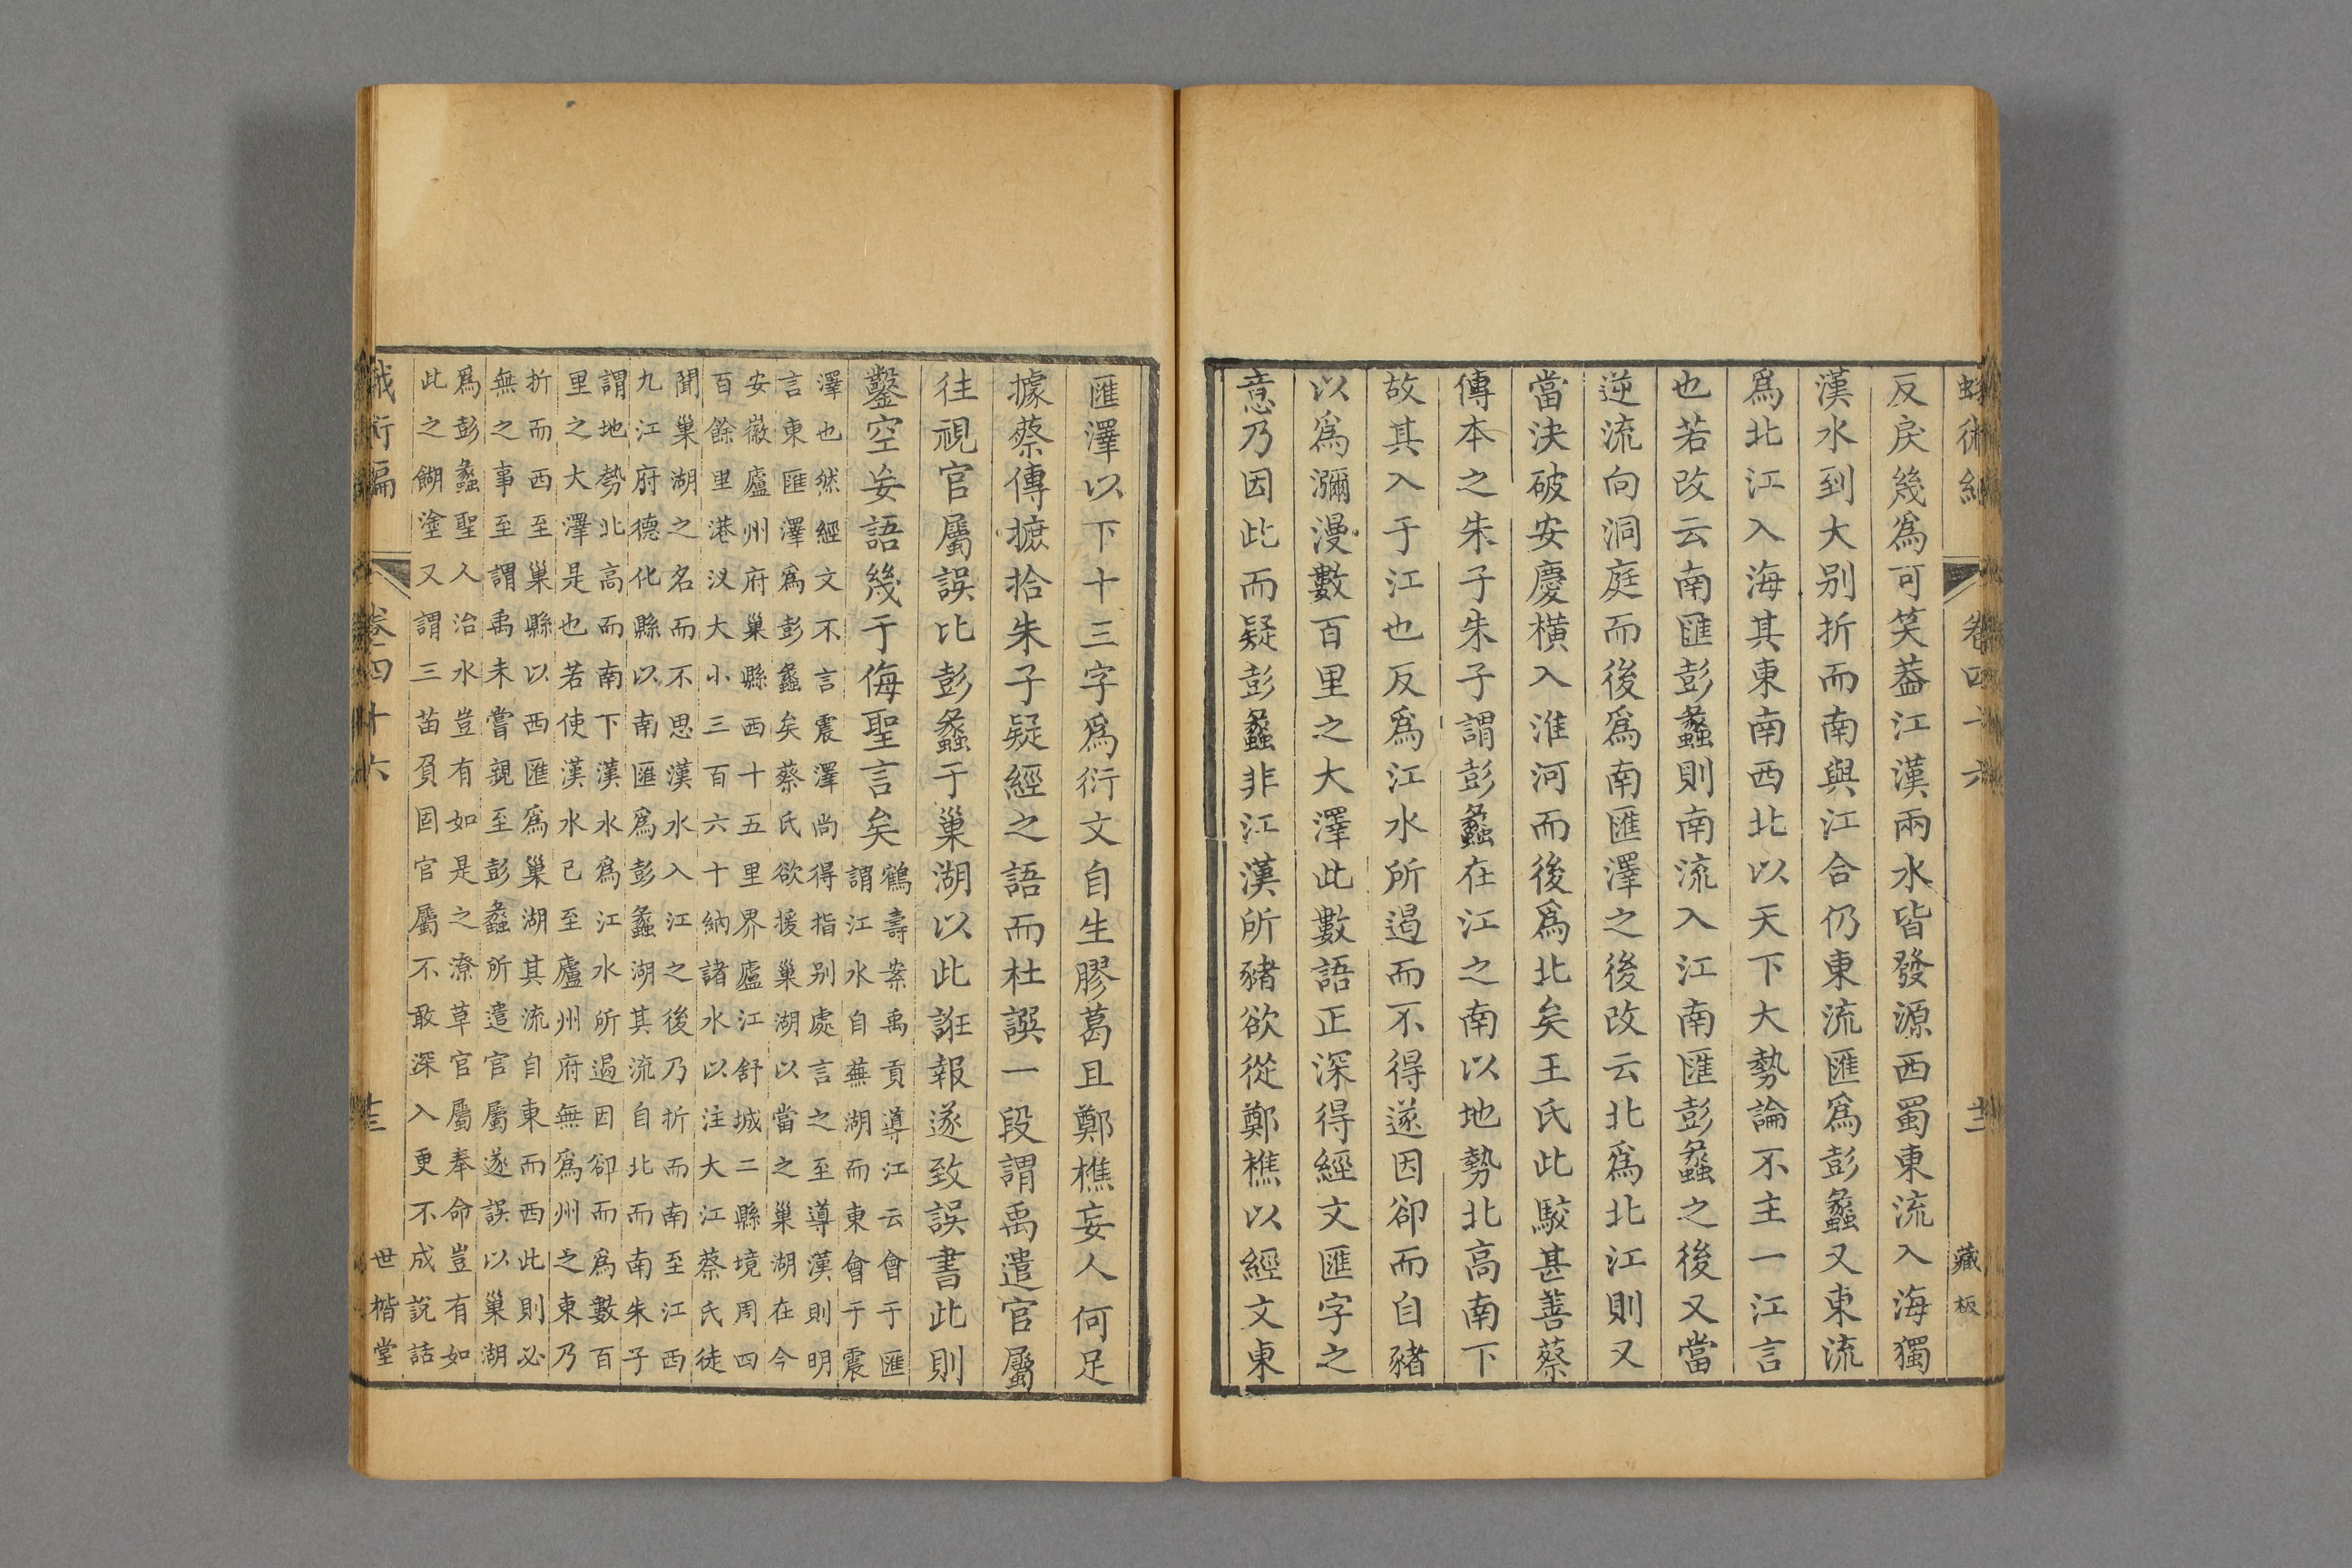 蛾術編 卷四十六 十二 藏板
反戾幾爲可笑葢江漢兩水皆發源西蜀東流入海獨
漢水到大别折而南與江合仍東流匯爲彭蠡又東流
爲北江入海其東南西北以天下大勢論不主一江言
也若改云南匯彭蠡則南流入江南匯彭蠡之後又當
逆流向洞庭而後爲南匯澤之後改云北爲北江則又
當決破安慶橫入淮河而後爲北矣王氏此駮甚善蔡
傳本之朱子朱子謂彭蠡在江之南以地勢北高南下
故其入于江也反爲江水所遏而不得遂因卻而自豬
以爲瀰漫數百里之大澤此數語正深得經文匯字之
意乃因此而疑彭蠡非江漢所豬欲從鄭樵以經文東
匯澤以下十三字爲衍文自生膠葛且鄭樵妄人何足
據蔡傳摭拾朱子疑經之語而杜譔一段謂禹遣官屬
往視官屬誤比彭蠡于巢湖以此誑報遂致誤書此則
鑿空妄語幾于侮聖言矣
鶴壽案禹貢導江云會于匯
謂江水自蕪湖而東會于震
澤也然經文不言震澤尚得指别處言之至導漢則明
言東匯澤爲彭蠡矣蔡氏欲援巢湖以當之巢湖在今
安徽廬州府巢縣西十五里界廬江舒城二縣境周四
百餘里港汊大小三百六十納諸水以注大江蔡氏徒
聞巢湖之名而不思漢水入江之後乃折而南至江西
九江府德化縣以南匯爲彭蠡湖其流自北而南朱子
謂地勢北高而南下漢水爲江水所遏因卻而爲數百
里之大澤是也若使漢水已至廬州府無爲州之東乃
折而西至巢縣以西匯爲巢湖其流自東而西此則必
無之事至謂禹未嘗親至彭蠡所遣官屬遂誤以巢湖
爲彭蠡聖人治水豈有如是之潦草官屬奉命豈有如
此之餬塗又謂三苗負固官屬不敢深入更不成說話
蛾術編 卷四十六 十三 世楷堂